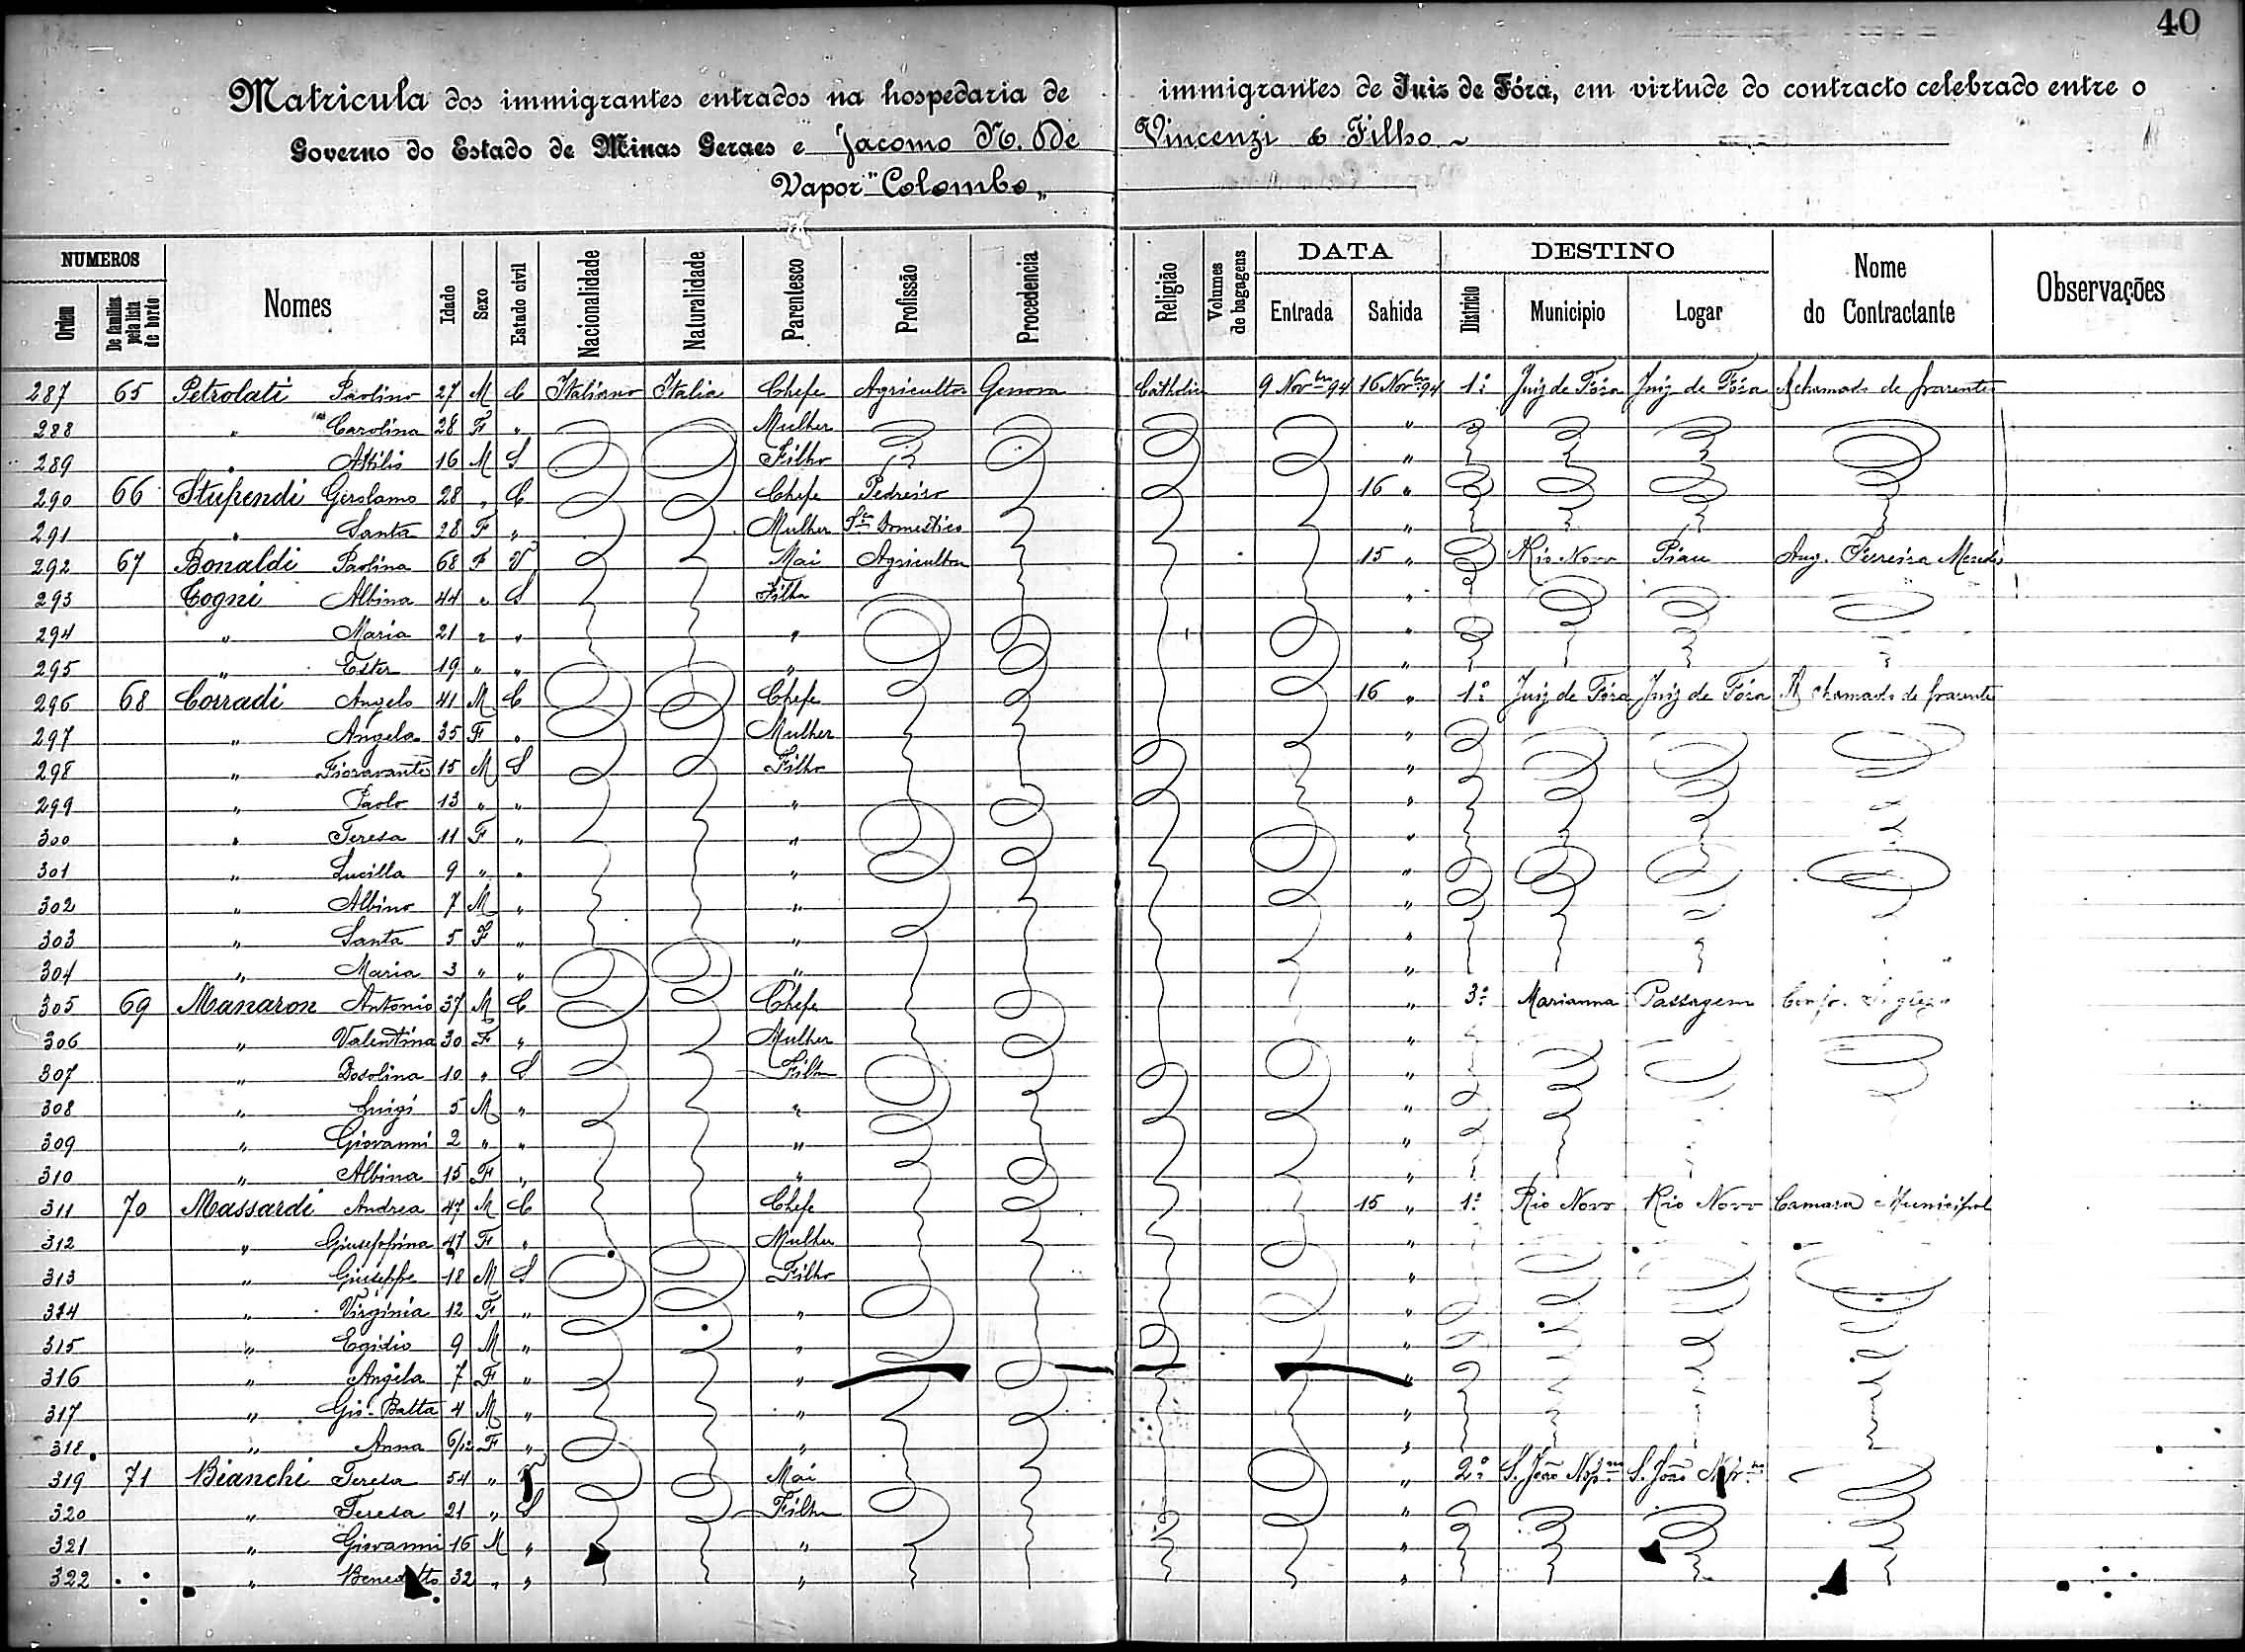 40
Matricula dos immigrantes entrados na hospedaria de immigrantes de Juiz de Fóra, em virtude do contracto celebrado entre o
Governo do Estado de Minas Geraes e Jacomo N. De Vincenzi & Filho
Vapor "Colombo"
NUMEROS DATA DESTINO
Ordem De familias pela lista de bordo Nomes Idade Sexo Estado civil Nacionalidade Naturalidade Parentesco Profissão Procedencia Religião Volumes de bagagens Entrada Sahida Districto Municipio Logar Nome do Contractante Observações
287 65 Petrolati Paolino 27 M C Italiano Italia Chefe Agricultor Genova Catholica 9 Novbro 94 16 Novbro 94 1º Juiz de Fóra Juiz de Fóra A chamado de parentes
288 " Carolina 28 F " Mulher "
289 " Attilio 16 M S Filho "
290 66 Stupendi Gerolamo 28 " C Chefe Pedreiro 16 "
291 " Santa 28 F " Mulher Sço Domestico "
292 67 Bonaldi Paolina 68 F V Mai Agricultora 15 " Rio Novo Piau Aug. Ferreira Mendes
293 Cogni Albina 44 " S Filha "
294 " Maria 21 " " " "
295 " Ester 19 " " " "
296 68 Corradi Angelo 41 M C Chefe 16 " 1º Juiz de Fóra Juiz de Fóra A chamado de parentes
297 " Angela 35 F " Mulher "
298 " Fioravante 15 M S Filho "
299 " Paolo 13 " " " "
300 " Teresa 11 F " " "
301 " Lucilla 9 " " " "
302 " Albino 7 M " " "
303 " Santa 5 F " " "
304 " Maria 3 " " " "
305 69 Manaron Antonio 37 M C Chefe " 3º Marianna Passagem
306 " Valentina 30 F " Mulher "
307 " Dosolina 10 " S Filha "
308 " Luigi 5 M " " "
309 " Giovanni 2 " " " "
310 " Albina 15 F " " "
311 70 Massardi Andrea 47 M C Chefe 15 " 1º Rio Novo Rio Novo Camara Municipal
312 " Giuseppina 47 F " Mulher "
313 " Giuseppe 18 M S Filho "
314 " Virginia 12 F " " "
315 " Egidio 9 M " " "
316 " Angela 7 F " " "
317 " Gio-Batta 4 M " " "
318 " Anna 6/12 F " " "
319 71 Bianchi Teresa 54 " V Mai " 2º S. João Nepno S. João Nepno
320 " Teresa 21 " S Filha "
321 " Giovanni 16 M " " "
322 " Benedetto 32 " " " "